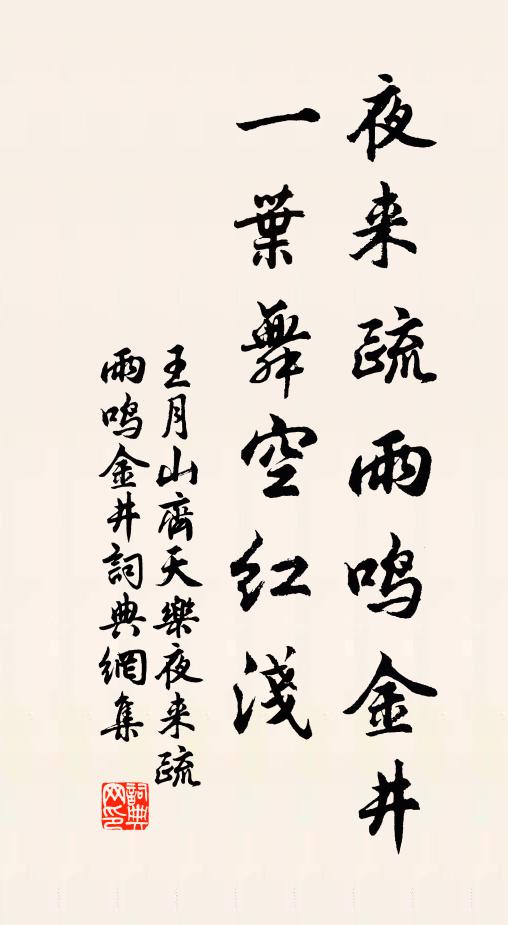 夜来疏雨鸣金井
一葉舞空红淺
王月山齊天樂夜来疏
雨鸣金井詞典網集
詞典网印